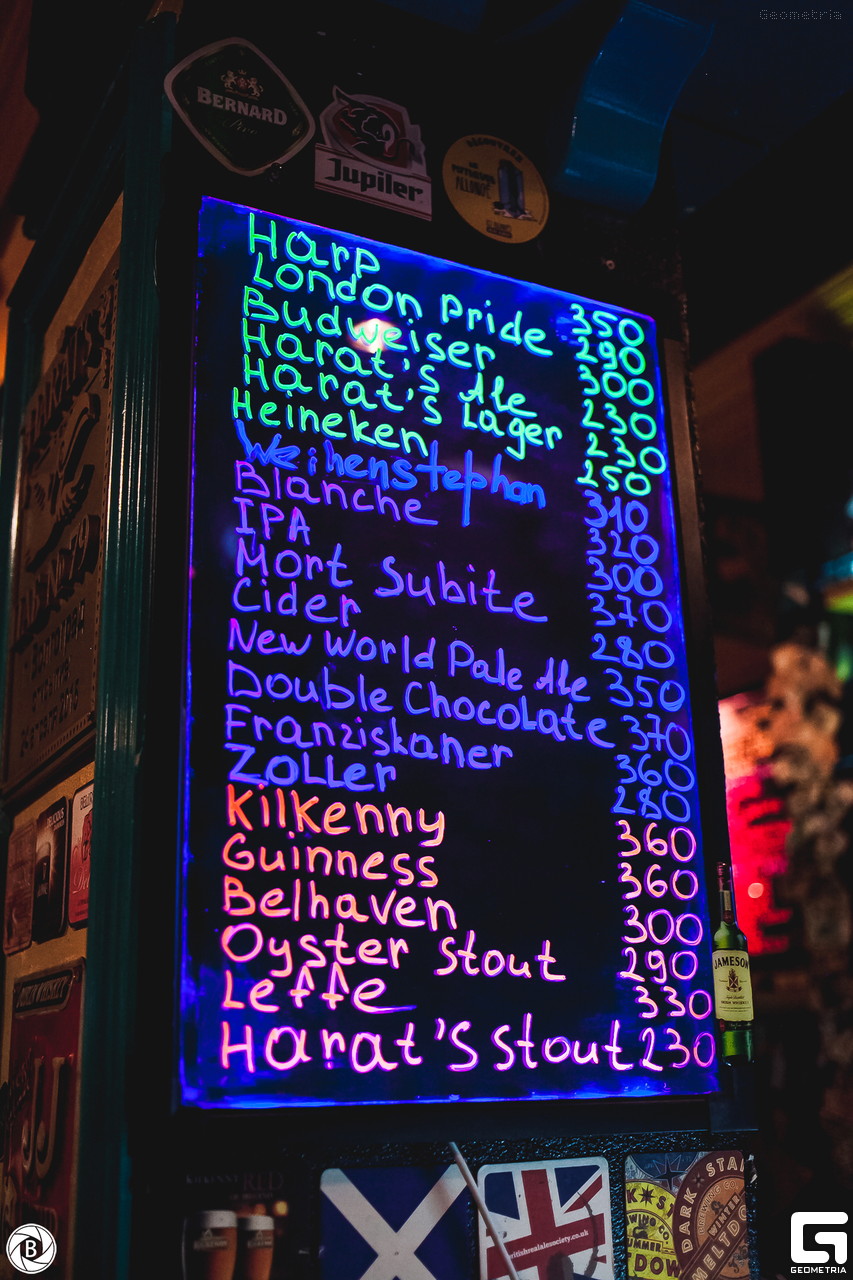 Geometria
BERNARD
Jupiler
Harp 350
London Pride 290
Budweiser 300
Harat's Ale 230
Harat's Lager 230
Heineken 250
Weihenstephan 310
Blanche 320
IPA 300
Mort Subite 370
Cider 280
New World Pale Ale 350
Double Chocolate 370
Franziskaner 360
Zoller 280
Kilkenny 360
Guinness 360
Belhaven 300
Oyster Stout 290
Leffe 330
Harat's Stout 230
JAMESON
JJ
britishrealalesociety.co.uk
DARK STAR
BREWING CO
WINTER
MELTDO
B
GEOMETRIA